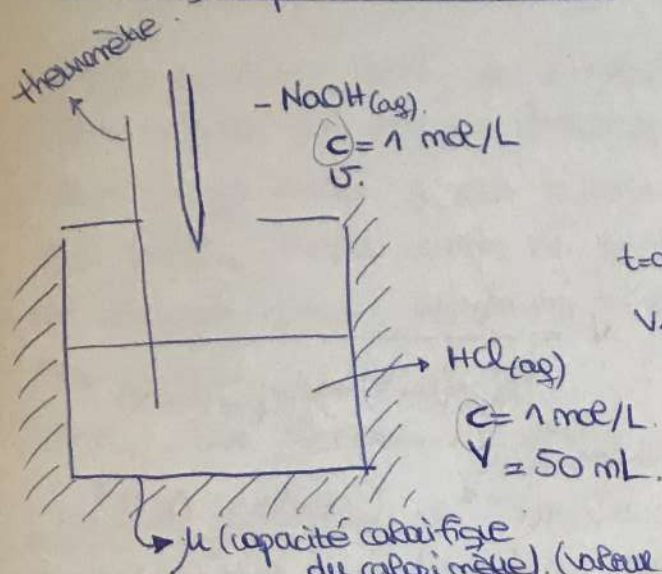 thermomètre.
- NaOH(aq).
C = 1 mol/L
V.
t=0
HCl(aq)
C = 1 mol/L.
V = 50 mL.
μ (capacité calorifique
du calorimètre). (valeur